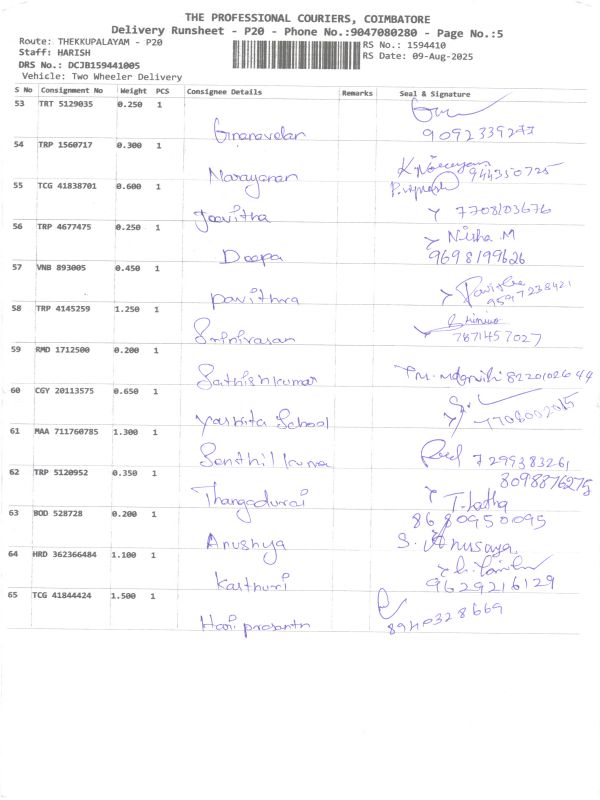 THE PROFESSIONAL COURIERS, COIMBATORE
Delivery Runsheet - P20 - Phone No.:9047080280 - Page No.:5
Route: THEKKUPALAYAM - P20
RS No.: 1594410
Staff: HARISH
RS Date: 09-Aug-2025
DRS No.: DCJB159441005
Vehicle: Two Wheeler Delivery
S No Consignment No Weight PCS Consignee Details Remarks Seal & Signature
53 TRT 5129035 0.250 1
Gnanavelan 9092339277
54 TRP 1560717 0.300 1
Narayanan 944350725
55 TCG 41838701 0.600 1
P.vignesh
Jeevitha 7708103676
56 TRP 4677475 0.250 1
Nisha M
Deepa 9698199626
57 VNB 893005 0.450 1
pavithra 9597238421
58 TRP 4145259 1.250 1
Srinivasan 7871457027
59 RMD 1712500 0.200 1
Sathishkumar 8220102644
60 CGY 20113575 0.650 1
School 7708002015
61 MAA 711760785 1.300 1
Senthilkumar 7299383261
62 TRP 5120952 0.350 1
8098876275
Thangadurai T. Latha
63 BOD 528728 0.200 1
8680950095
Anushya S. Anusaya.
64 HRD 362366484 1.100 1
Kasthuri 9629216129
65 TCG 41844424 1.500 1
Hari prasanth 8940328669